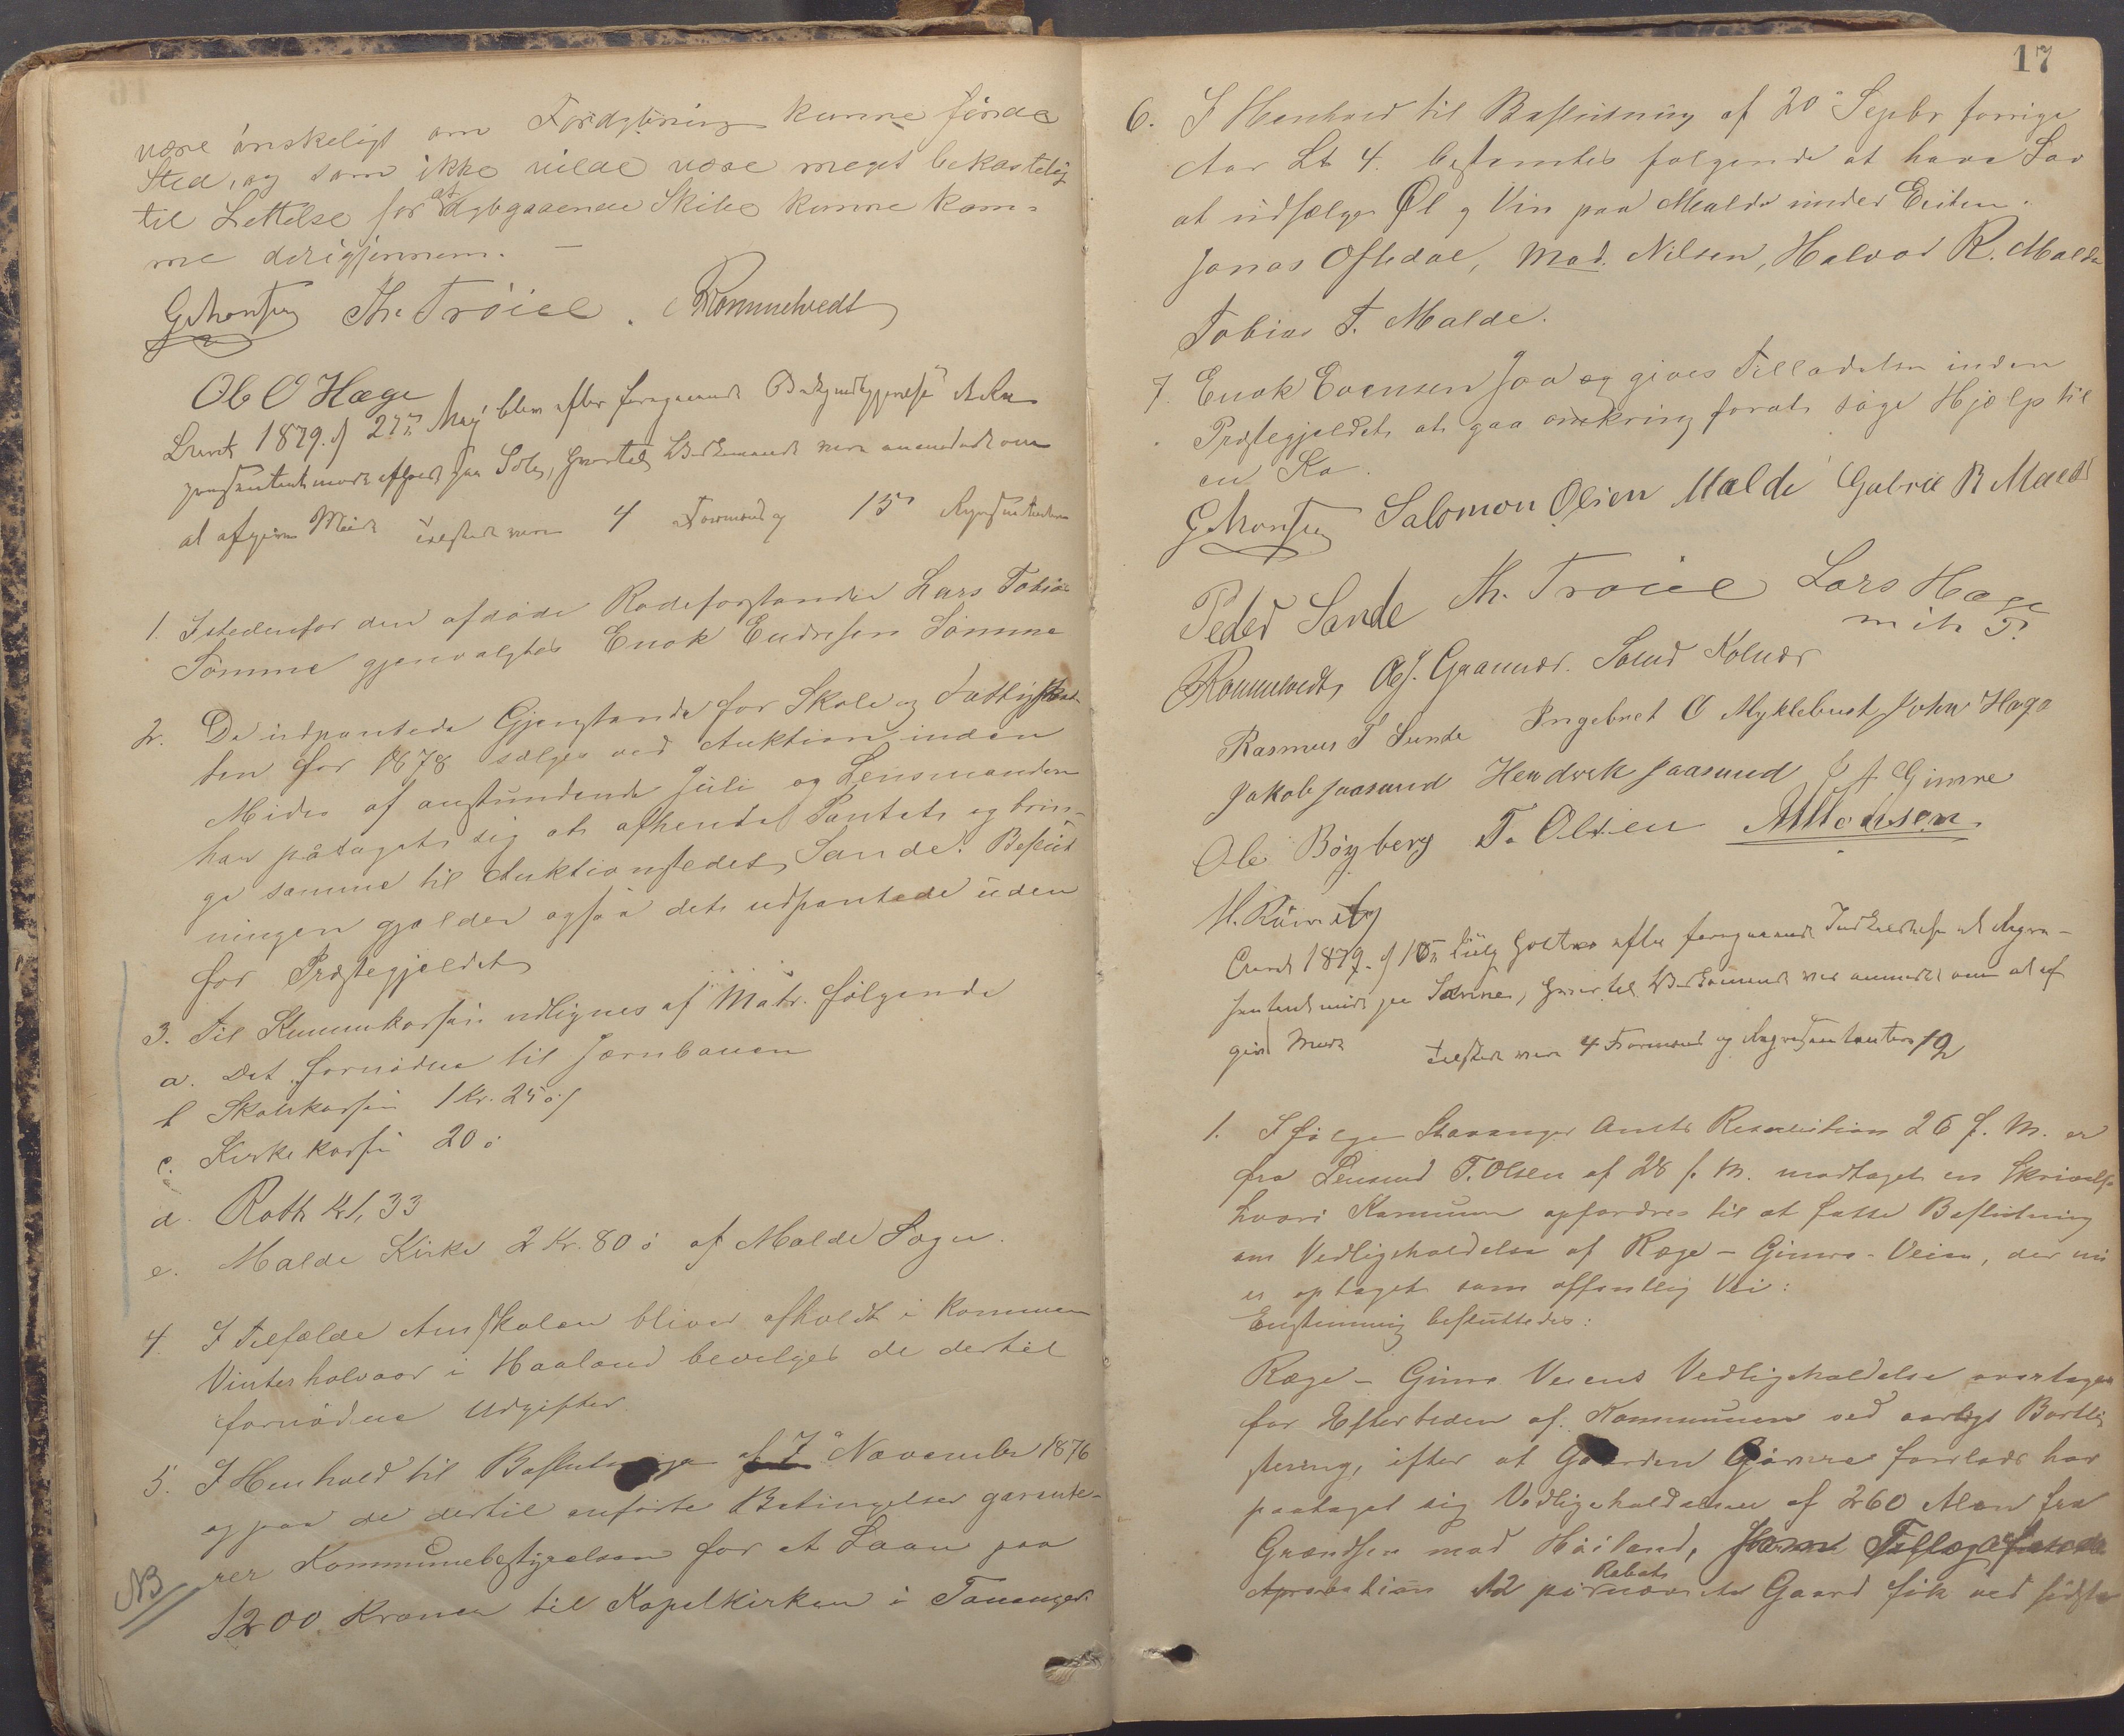 være ønskeligt om Fordybning kunne finde
Sted, og som ikke vilde være meget bekostelig
til Lettelse for at dybgaaende Skibe kunne kom-
me derigjennem. —
G Monsen Th. Trøiel. Rommetvedt
Ole O Hæge
Aaret 1879. d 27de Mai blev efter foregaaende Bekjendtgjørelse
paa Sole, hvortil Vedkommende vare anmodede om
at afgive Møde tilstede vare 4 Formænd og 15 Repræsentanter
1. Istedenfor den afdøde Rodeforstander Lars Tobias
Sømme gjenvalgtes Enok Endresen Sømme
2. De udpantede Gjenstande for Skole og Fattigskat-
ten for 1878 sælges ved Auktion inden
Midten af anstundende Juli og Lensmanden
har påtaget sig at afhende Pantet og brin-
ge samme til Auktionstedet, Sande. Beslut
ningen gjælder også det udpantede uden
for Præstegjeldet
3. Til Kommukassen udlignes af Matr. følgende
a. Det fornødne til Jærnbanen
b Skolekassen 1 Kr. 25 ø/
c. Kirkekassen 20 ø
d. Rotth Kr 1,33
e. Malde Kirke 2 Kr. 80 ø af Malde Sogn.
4. I Tilfælde Amtskolen bliver afholdt i Kommunen
Vinterhalvaar i Haaland bevilges de dertil
fornødne Udgifter
5. I Henhold til Beslutninger af 7de November 1876
og paa de dertil anførte Betingelser garante-
rer Kommunebestyrelsen for et Laan paa
NB
1200 Kroner til Kapelkirken i Tananger.
17
6. I Henhold til Beslutning af 20de Septbr forrige
Aar Lt 4. bestemtes følgende at have Lov
at udsælge Øl og Vin paa Malde under Exiten.
Jonas Oftedal, Mad. Nilsen, Halvor R. Malde
Tobias T. Malde.
7. Enok Evensen Joa og gives Tilladelse inden
Præstegjeldet at gaa omkring forat søge Hjælp til
en Ko.
G Monsen Salomon Olsen Malde Gabriel R Malde
Peder Sande Th. Trøiel Lars Hæge
m ih P.
Rommetvedt O J. Graanær. Svend Kolnær
Rasmus T Sunde Ingebret O Myklebust John Haga
Jakob Jaasund Hendrek Jaasund J A Gimre
Ole Bøyberg T. Olsen M Monsen
Aaret 1879. d 10de July holtes efter foregaaende Indkaldelse et Repræ-
sentantmøde paa Sømme, hvortil Vedkommende var anmodet om at af
give Møde tilstede vare 4 Formænd og Repræsentanter 12
1. Ifølge Stavanger Amts Resolution 26 f. M. er
fra Lensmd T. Olsen af 28 f. M. modtaget en Skrivelse
hvori Kommunen opfordres til at fatte Beslutning
om Vedligeholdelse af Ræge – Gimre – Veien, der nu
er optaget som offentlig Vei:
Enstemmig besluttedes:
Ræge – Gimre Veiens Vedligeholdelse overtages
for Eftertiden af Kommunen ved aarligt Bortli
stering, efter at Gaarden Gimre fremdeles har
paataget sig Vedligeholdelsen af 260 Alen fra
Grændsen mod Høiland,
Rabat
Gaard fik ved sidste